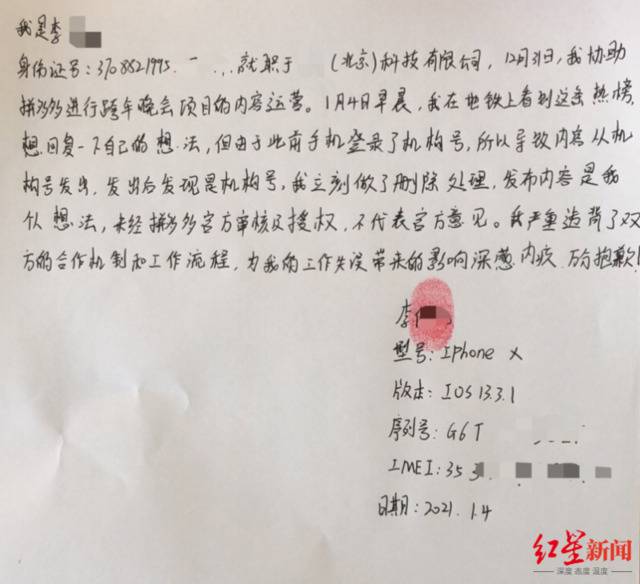 我是李
身份证号:3708821995. 就职于 (北京)科技有限公司,12月31日,我协助
拼多多进行跨年晚会项目的内容运营。1月4日早晨,我在地铁上看到这条热榜,
想回复一下自己的想法,但由于此前手机登录了机构号,所以导致内容从机
构号发出,发出后发现是机构号,我立刻做了删除处理,发布内容是我
想法,未经拼多多官方审核及授权,不代表官方意见。我严重违背了双
方的合作机制和工作流程,为我的工作失误带来的影响深感内疚,万分抱歉!
李
型号:Iphone X
版本:IOS 13.3.1
序列号:G6T
IMEI:35 3
日期:2021.1.4
红星新闻
深度 态度 温度